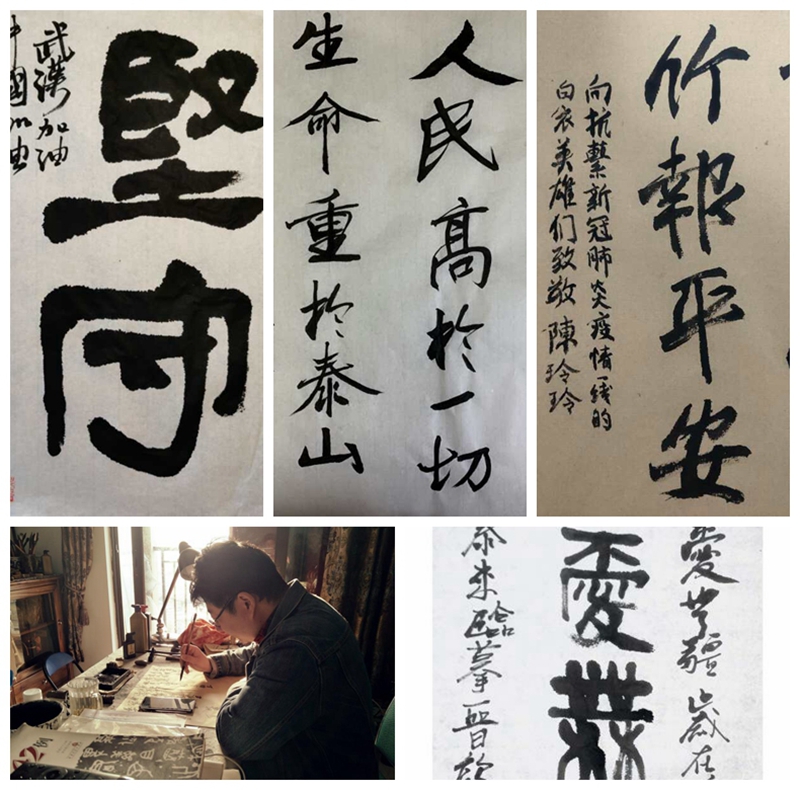 堅守
武漢加油
中國加油
人民高於一切
生命重於泰山
竹報平安
向抗繫新冠肺炎疫情一线的
白衣英雄们致敬 陳玲玲
愛無疆 歲在
愛無
臨摹